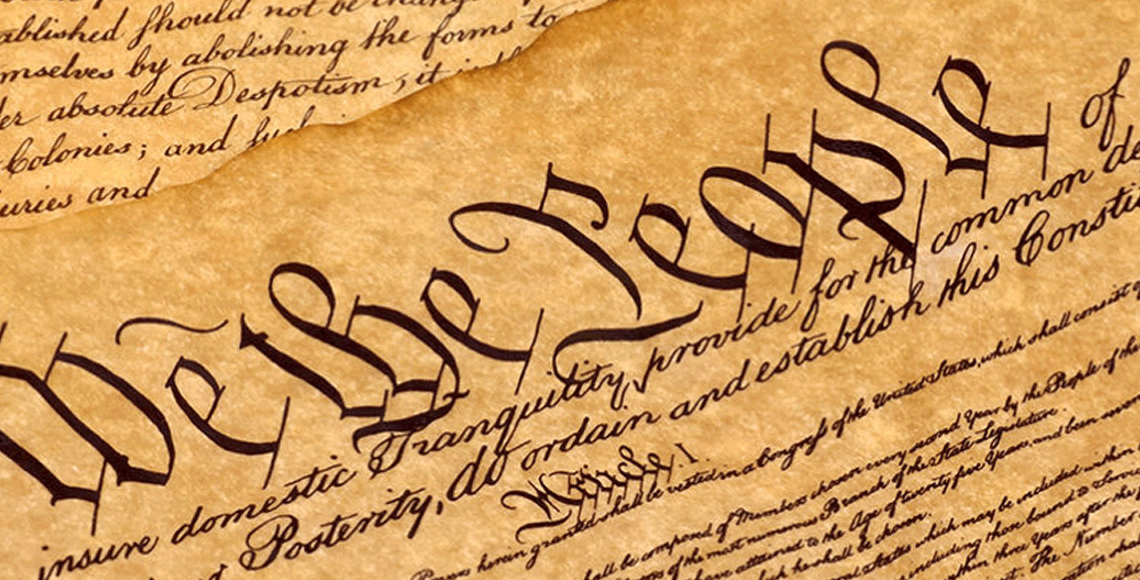 ablished should not be
mselves by abolishing the forms to
er absolute Despotism, it
Colonies; and such
uries and
We the People of
insure domestic Tranquility, provide for the common de
Posterity, do ordain and establish this Consti
Article. I.
herein granted shall be vested in a Congress of the United States, which shall consist
hall be composed of Members chosen every second Year by the People of the
of the most numerous Branch of the State Legislature.
have attained to the Age of twenty five Years, and been
he shall be chosen.
States which may be included within
including those bound to
within three Years after the
The Number